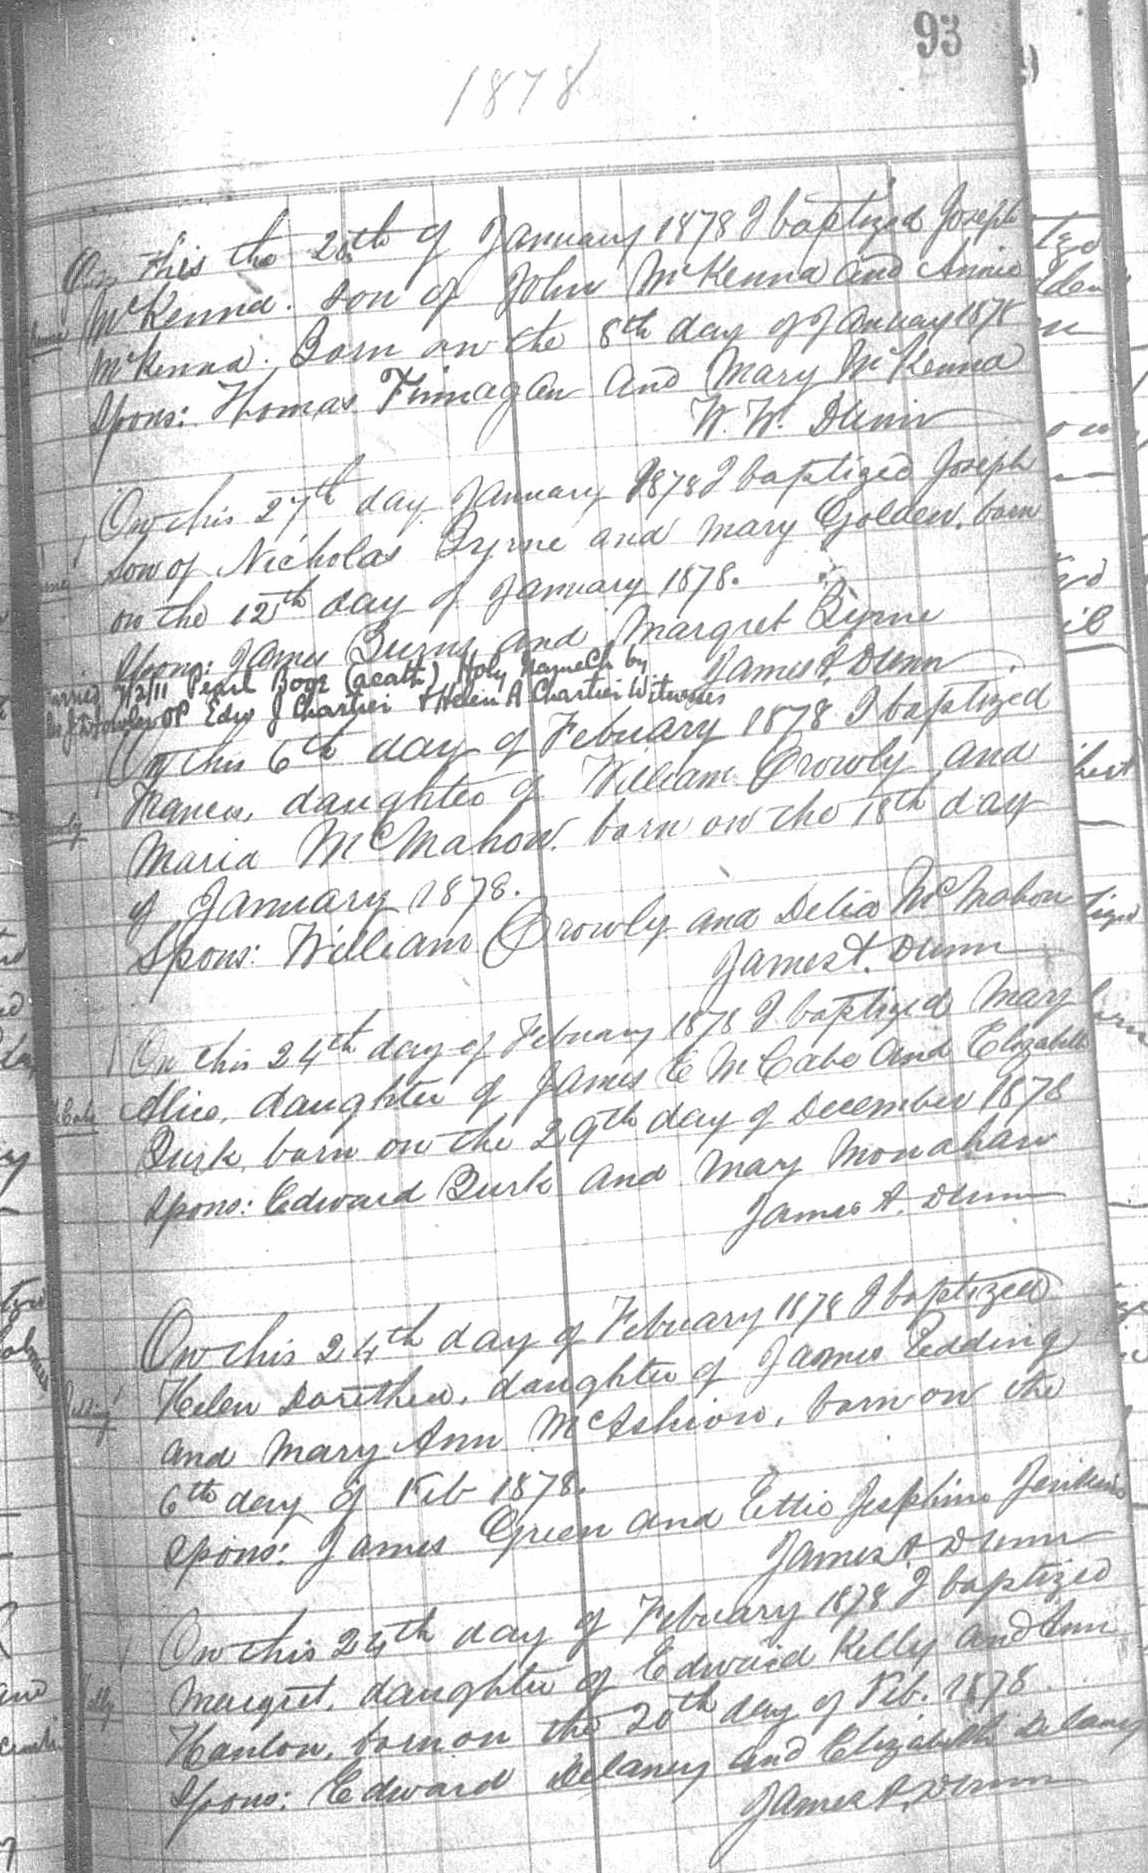 93
1878
On this the 20th of January 1878 I baptized Joseph
McKenna. son of John McKenna and Annie
McKenna. Born on the 8th day of January 1878
Spons: Thomas Finnagan and Mary McKenna
W. W. Dunn
On this 27th day January 1878 I baptized Joseph
son of Nicholas Byrne and Mary Golden. born
on the 12th day of January 1878.
Spons: James Burns and Margret Byrne
James A. Dunn
Married 7/2/11 Pearl Boge (acath) Holy Name Ch by
J D Fowler OP Edw J Chartier & Helen A Chartier Witnesses
On this 6th day of Febuary 1878 I baptized
Frances, daughter of William Crowly and
Maria McMahon. born on the 18th day
of January 1878.
Spons: William Crowly and Delia McMahon
James A. Dunn
On this 24th day of Febuary 1878 I baptized Mary
Alice, daughter of James E McCabe and Elizabeth
Burk, born on the 29th day of December 1878
Spons: Edward Burk and Mary Monahan
James A. Dunn
On this 24th day of Febuary 1878 I baptized
Helen Dorethea, daughter of James Redding
and Mary Ann McAshion, born on the
6th day of Feb 1878.
Spons: James Green and Ettie Josphine Jenkins
James A. Dunn
On this 24th day of Febuary 1878 I baptized
Margret, daughter of Edward Kelly and Ann
Hanlon, born on the 20th day of Feb. 1878.
Spons: Edward Delaney and Elizabeth Delaney
James A. Dunn